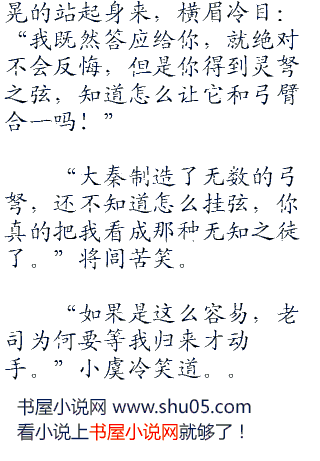 晃的站起身来，横眉冷目：
“我既然答应给你，就绝对
不会反悔，但是你得到灵弩
之弦，知道怎么让它和弓臂
合一吗！”
“大秦制造了无数的弓
弩，还不知道怎么挂弦，你
真的把我看成那种无知之徒
了。”将闾苦笑。
“如果是这么容易，老
司为何要等我归来才动
手。”小虞冷笑道。。
书屋小说网 www.shu05.com
看小说上书屋小说网就够了！